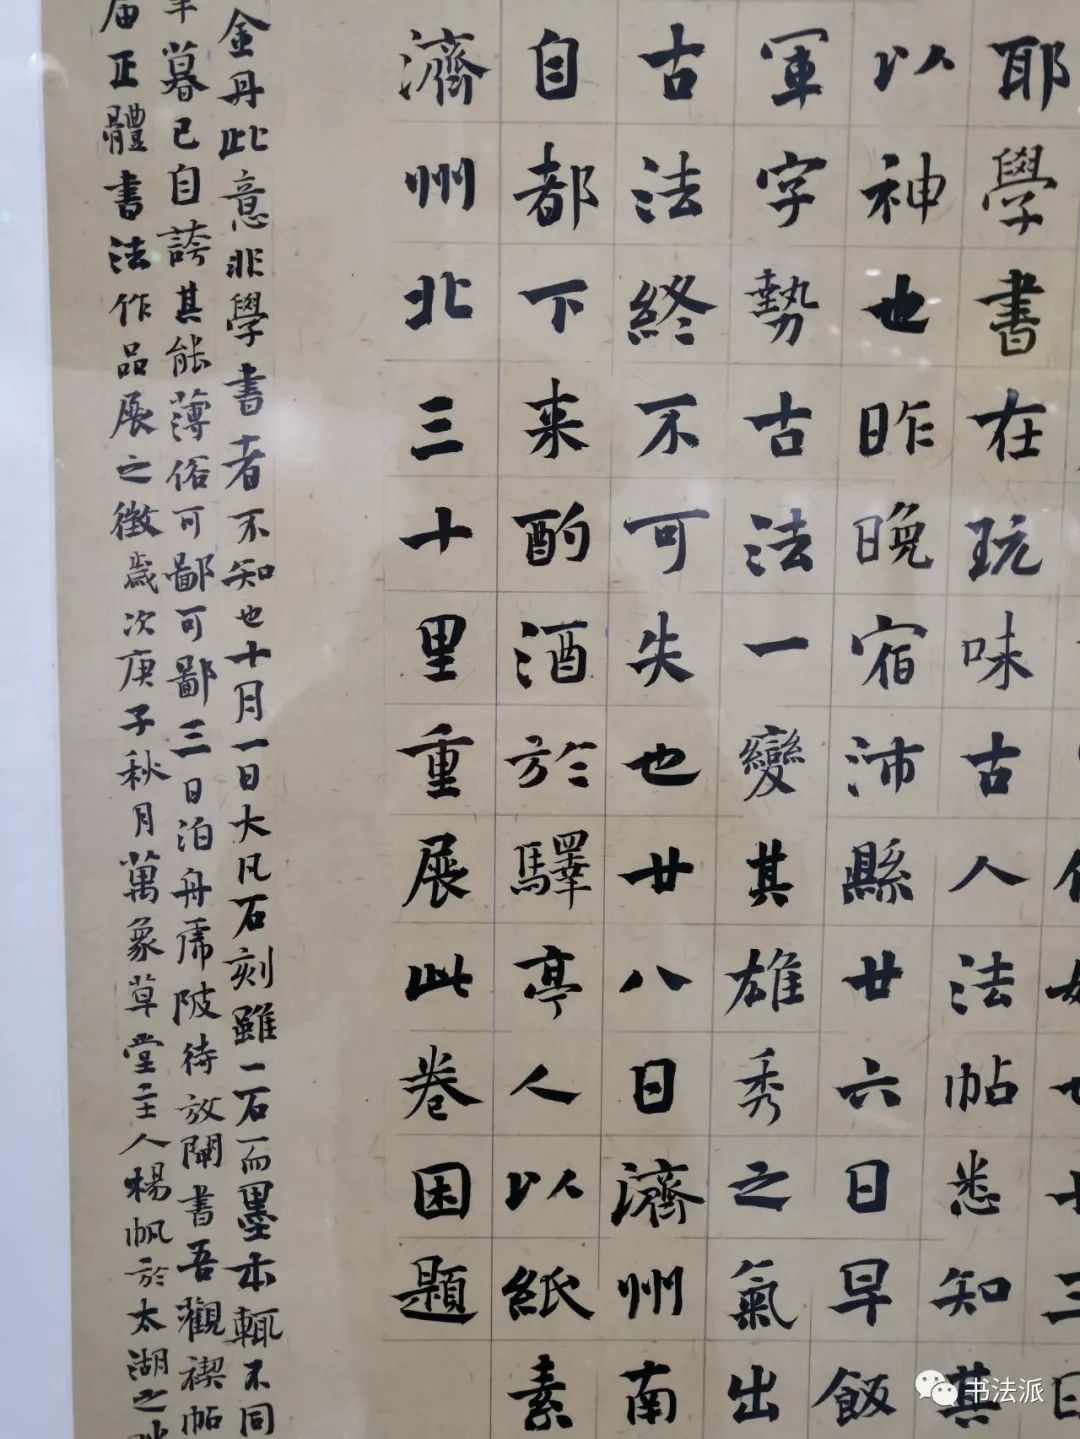 耶學書在玩味古人法帖悉知其
以神也昨晚宿沛縣廿六日早飯
軍字勢古法一變其雄秀之氣出
古法終不可失也廿八日濟州南
自都下来酌酒於驛亭人以紙素
濟州北三十里重展此卷因題
金丹此意非學書者不知也十月一日大凡石刻雖一石而墨本輒不同
暮已自誇其能薄俗可鄙可鄙三日泊舟虎陂待放閘書吾觀禊帖
届正體書法作品展之徵歲次庚子秋月萬象草堂主人楊帆於太湖之
书法派